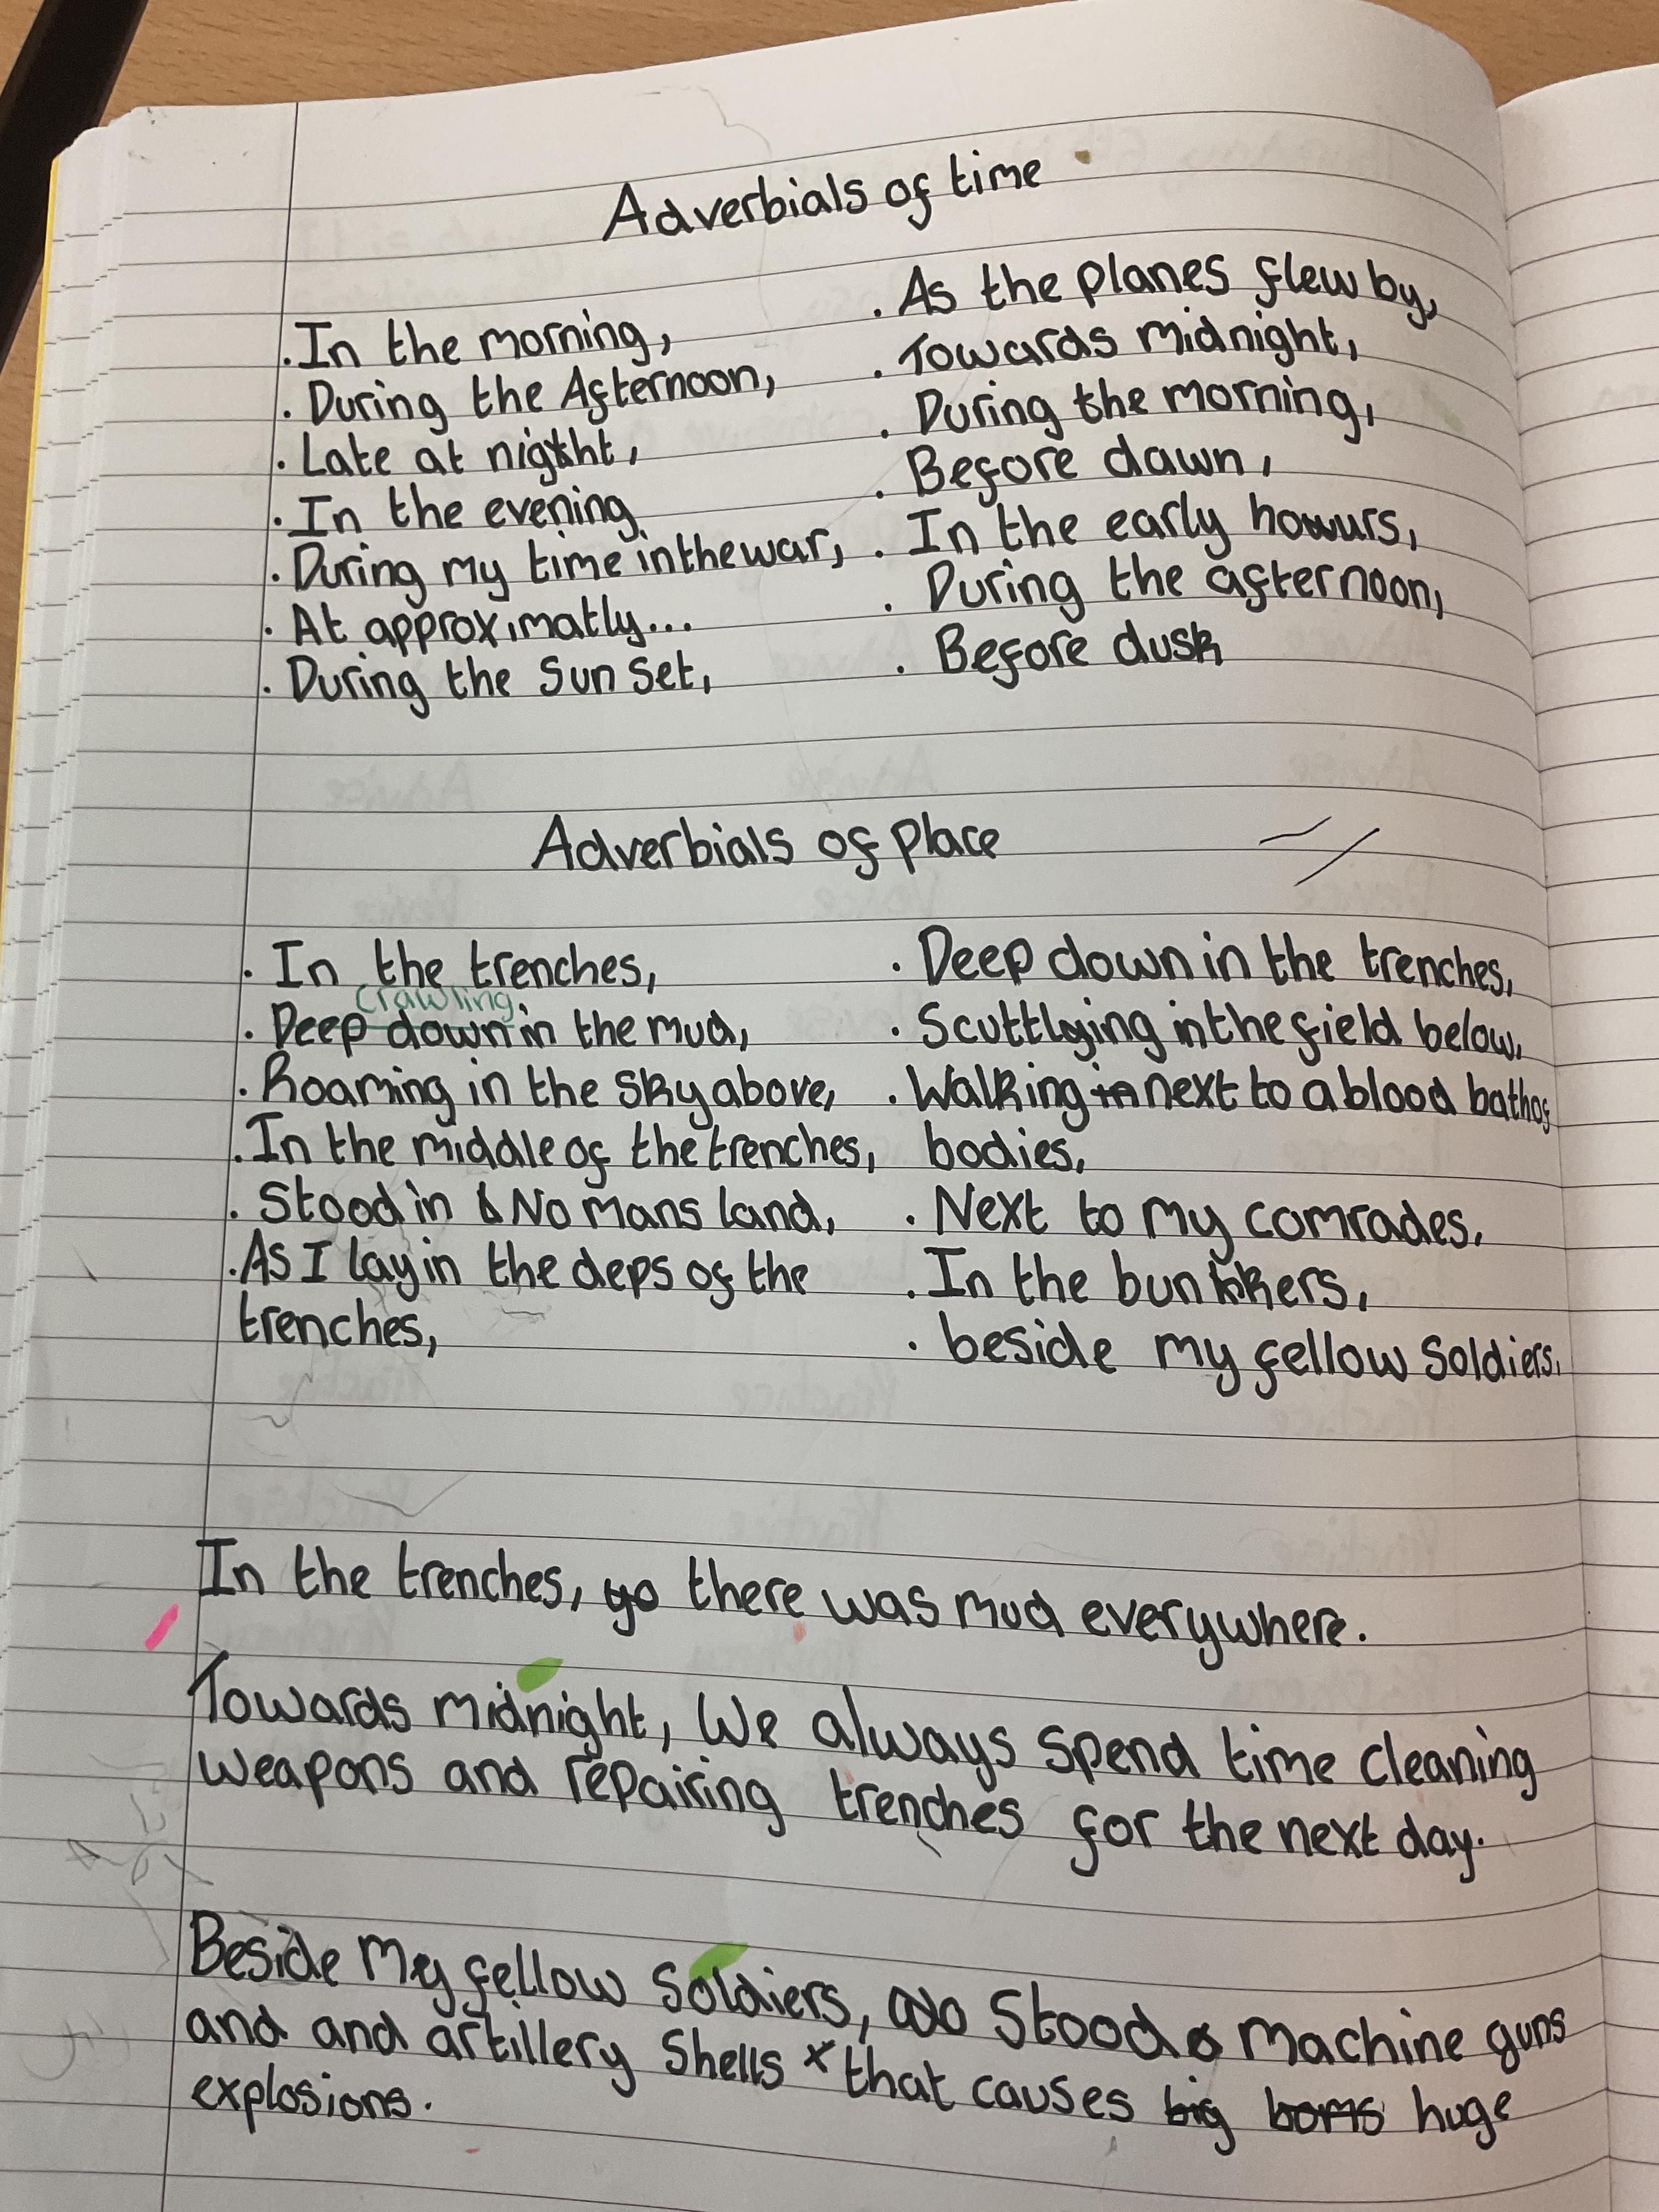 Adverbials of time
. In the morning,
. During the Afternoon,
. Late at night,
. In the evening
. During my time in the war,
. At approximatly...
. During the Sun Set,
. As the planes flew by,
. Towards midnight,
. During the morning,
. Before dawn,
. In the early hours,
. During the afternoon,
. Before dusk
Adverbials of place
. In the trenches,
crawling
. Deep down in the mud,
. Roaming in the sky above,
. In the middle of the trenches,
. Stood in No mans land,
. As I lay in the deps of the
trenches,
. Deep down in the trenches,
. Scuttlying in the field below,
. Walking in next to a blood bath of
bodies,
. Next to my comrades,
. In the bunkers,
. beside my fellow Soldiers,
In the trenches, go there was mud everywhere.
Towards midnight, We always spend time cleaning
weapons and repairing trenches for the next day.
Beside My fellow Soldiers, Stood Machine guns
and and artillery Shells that causes big boms huge
explosions.